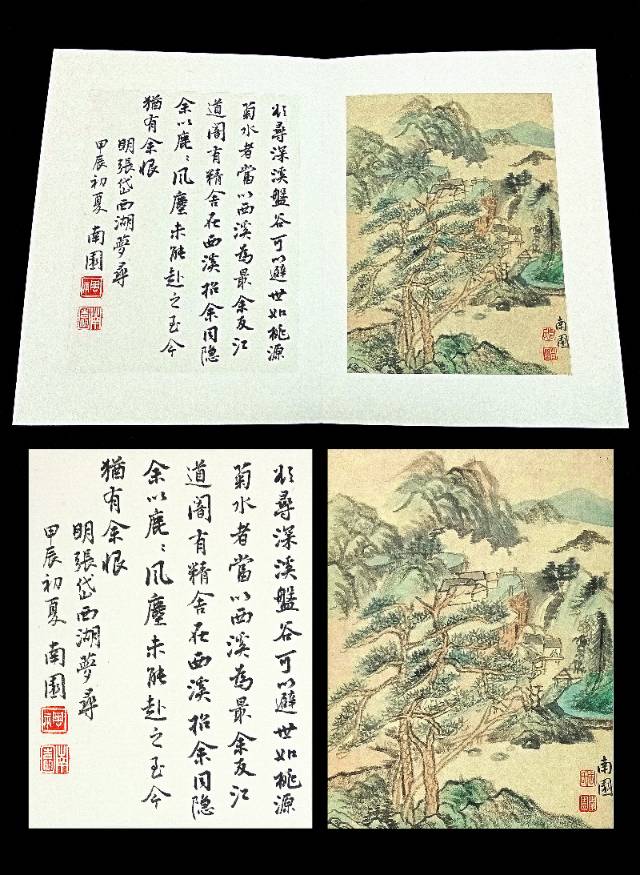 欲尋深溪盤谷可以避世如桃源
菊水者當以西溪為最余友江
道閣有精舍在西溪招余同隐
余以鹿〻風塵未能赴之至今
猶有余恨
明張岱西湖夢尋
甲辰初夏 南園
南園
欲尋深溪盤谷可以避世如桃源
菊水者當以西溪為最余友江
道閣有精舍在西溪招余同隐
余以鹿〻風塵未能赴之至今
猶有余恨
明張岱西湖夢尋
甲辰初夏 南園
南園